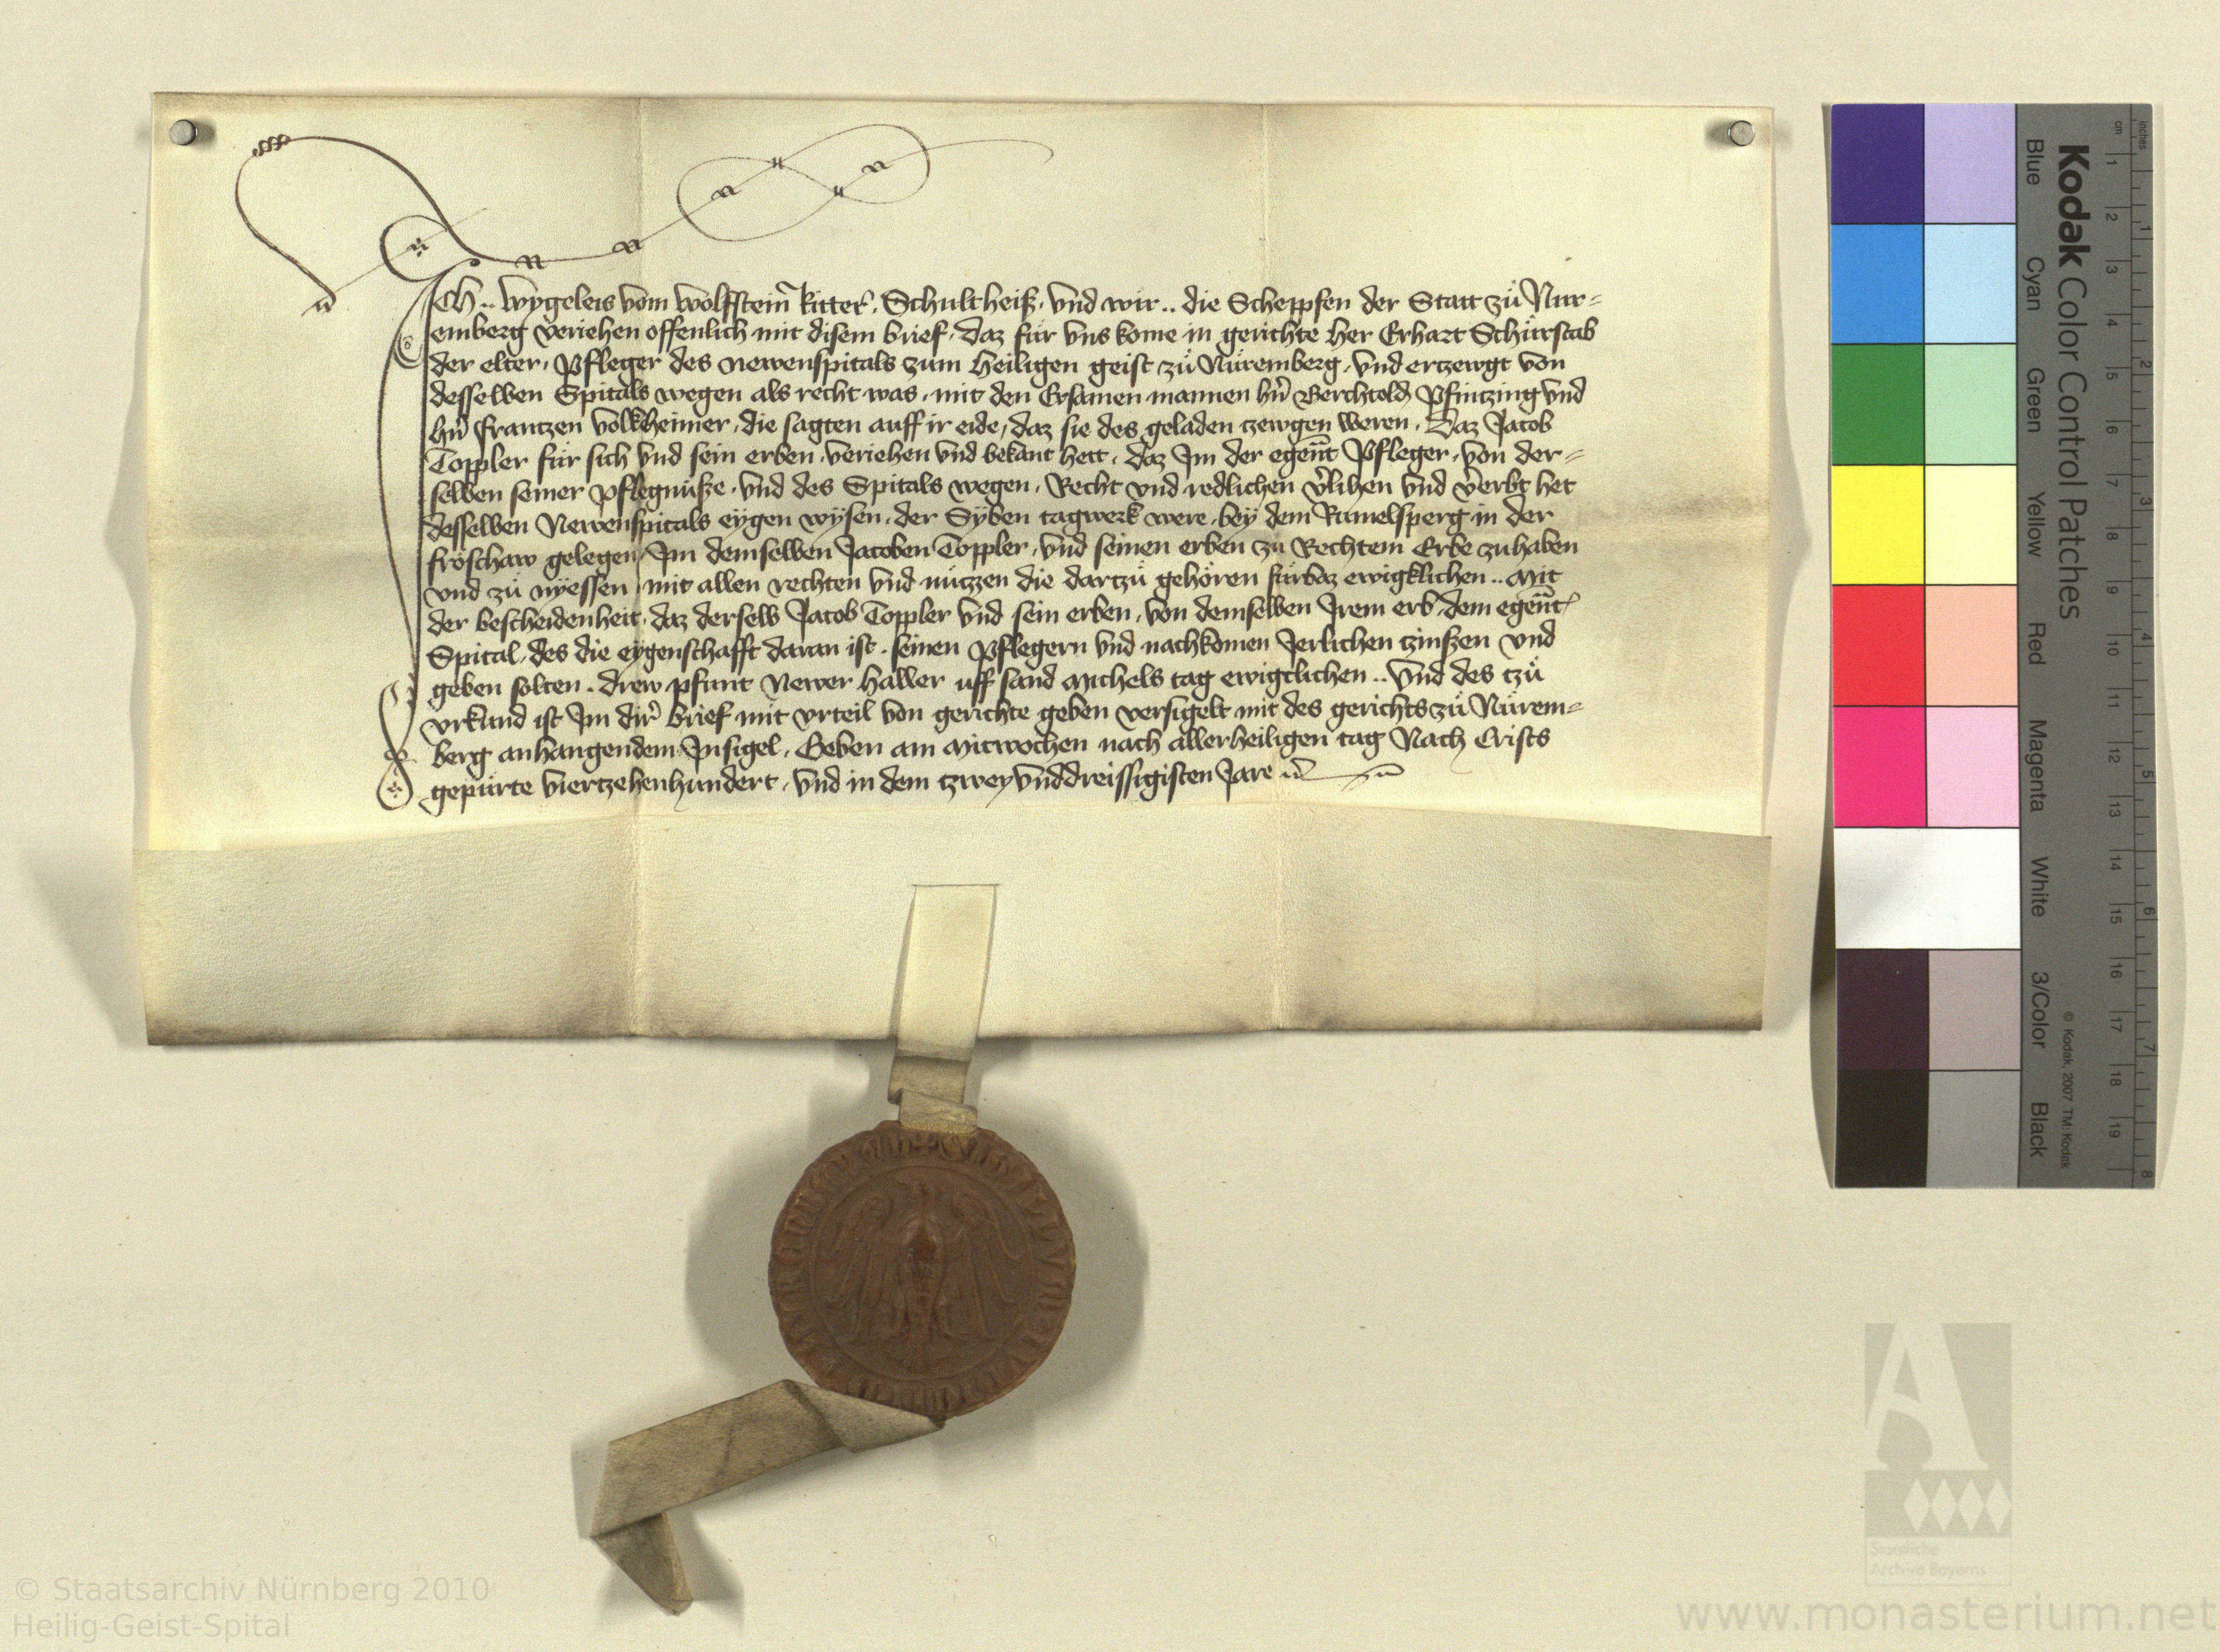 Ich .. Wygeleis vom Wolfstein̄ Ritter, Schultheiß, vnd wir .. die Scheppfen der Statt zů Nur=
emberg veriehen offenlich mit disem brief, daz für vns kome in gerichte her Erhart Schürstab
der elter, Pfleger des newenspitals zum heiligen geist zů Nůremberg, vnd ertzewgt von
desselben Spitals wegen als recht was, mit den Ersamen mannen hn̄ Berchtold Pfintzing vnd
hn̄ Frantzen Volkheimer, die sagten auff ir eide, daz sie des geladen tzewgen weren, Daz Jacob
Toppler für sich vnd sein erben, veriehen vnd bekant hett, daz Im der egen̄t Pfleger, von der=
selben seiner pflegnüße, vnd des Spitals wegen, Recht vnd redlichen v̄lihen vnd v̄erbt het
desselben Newenspitals eÿgen wÿsen, der Sÿben tagwerk were, beÿ dem Ramelsperg in der
fröschaw gelegen, Im demselben Jacoben Toppler, vnd seinen erben zu Rechtem Erbe zuhaben
vnd zů nÿessen, mit allen rechten vnd nützzen die dartzů gehören fürbaz ewigklichen .. Mit
der bescheidenheit, daz derselb Jacob Toppler vnd sein erben, von demselben Irem erb, dem egen̄t
Spital, des die eÿgenschafft daran ist, seinen Pflegern vnd nachkomen Jerlichen tzinßen vnd
geben solten, drew pfunt Newer haller uff sand Michels tag ewigclichen .. Vnd des tzů
vrkund ist Im dir̄ brief mit vrteil von gerichte geben versigelt mit des gerichts zů Nürem=
berg anhangendem Insigel, Geben am Mitwochen nach allerheiligen tag Nach Crists
gepürte viertzehenhundert, vnd in dem tzweyvnddreissigisten Jare
Kodak Color Control Patches
Blue Cyan Green Yellow Red Magenta White 3/Color Black
© Kodak, 2007 TM: Kodak
inches 1 2 3 4 5 6 7 8
cm 1 2 3 4 5 6 7 8 9 10 11 12 13 14 15 16 17 18 19
Staatliche
Archive Bayerns
© Staatsarchiv Nürnberg 2010
Heilig-Geist-Spital
www.monasterium.net